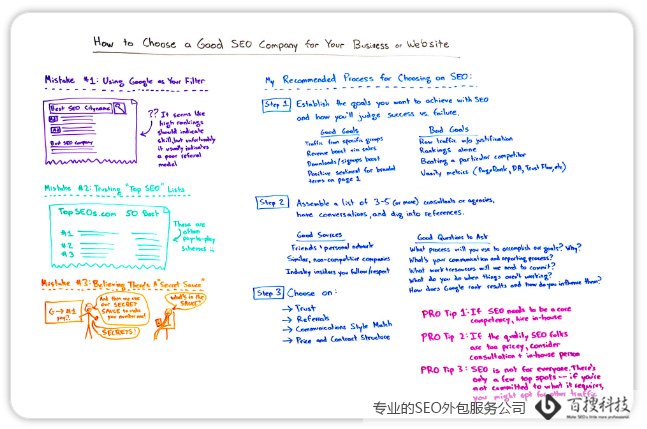 How to Choose a Good SEO Company for Your Business or Website
Mistake #1: Using Google as Your Filter
Best SEO Cityname
Ad
Ad
Best SEO company
?? It seems like
high rankings
should indicate
skill, but unfortunately
it usually indicates
a poor referral
model
Mistake #2: Trusting "Top SEO" Lists
TopSEOs.com 50 Best
#1
#2
#3
These are
often
pay-to-play
schemes :(
Mistake #3: Believing There's A "Secret Sauce"
G → #1
And then we use
our SECRET
SAUCE to make
you number one!
SECRETS!
What's in the
SAUCE?
My Recommended Process for Choosing an SEO:
Step 1
Establish the goals you want to achieve with SEO
and how you'll judge success vs. failure.
Good Goals
Traffic from specific groups
Revenue boost via sales
Downloads/signups boost
Positive sentiment for branded
terms on page 1
Bad Goals
Raw traffic w/o justification
Rankings alone
Beating a particular competitor
Vanity metrics (PageRank, DA, Trust Flow, etc)
Step 2
Assemble a list of 3-5 (or more) consultants or agencies,
have conversations, and dig into references.
Good Sources
Friends + personal network
Similar, non-competitive companies
Industry insiders you follow/respect
Good Questions to Ask
What process will you use to accomplish our goals? Why?
What's your communication and reporting process?
What work+resources will we need to commit?
What do you do when things aren't working?
How does Google rank results and how do you influence them?
Step 3
Choose on:
→ Trust
→ Referrals
→ Communications Style Match
→ Price and Contract Structure
PRO Tip 1: If SEO needs to be a core
competency, hire in-house
PRO Tip 2: If the quality SEO folks
are too pricey, consider
consultation + in-house person
PRO Tip 3: SEO is not for everyone. There's
only a few top spots -- if you're
not committed to what it requires,
you might opt for other traffic
专业的SEO外包服务公司
百搜科技